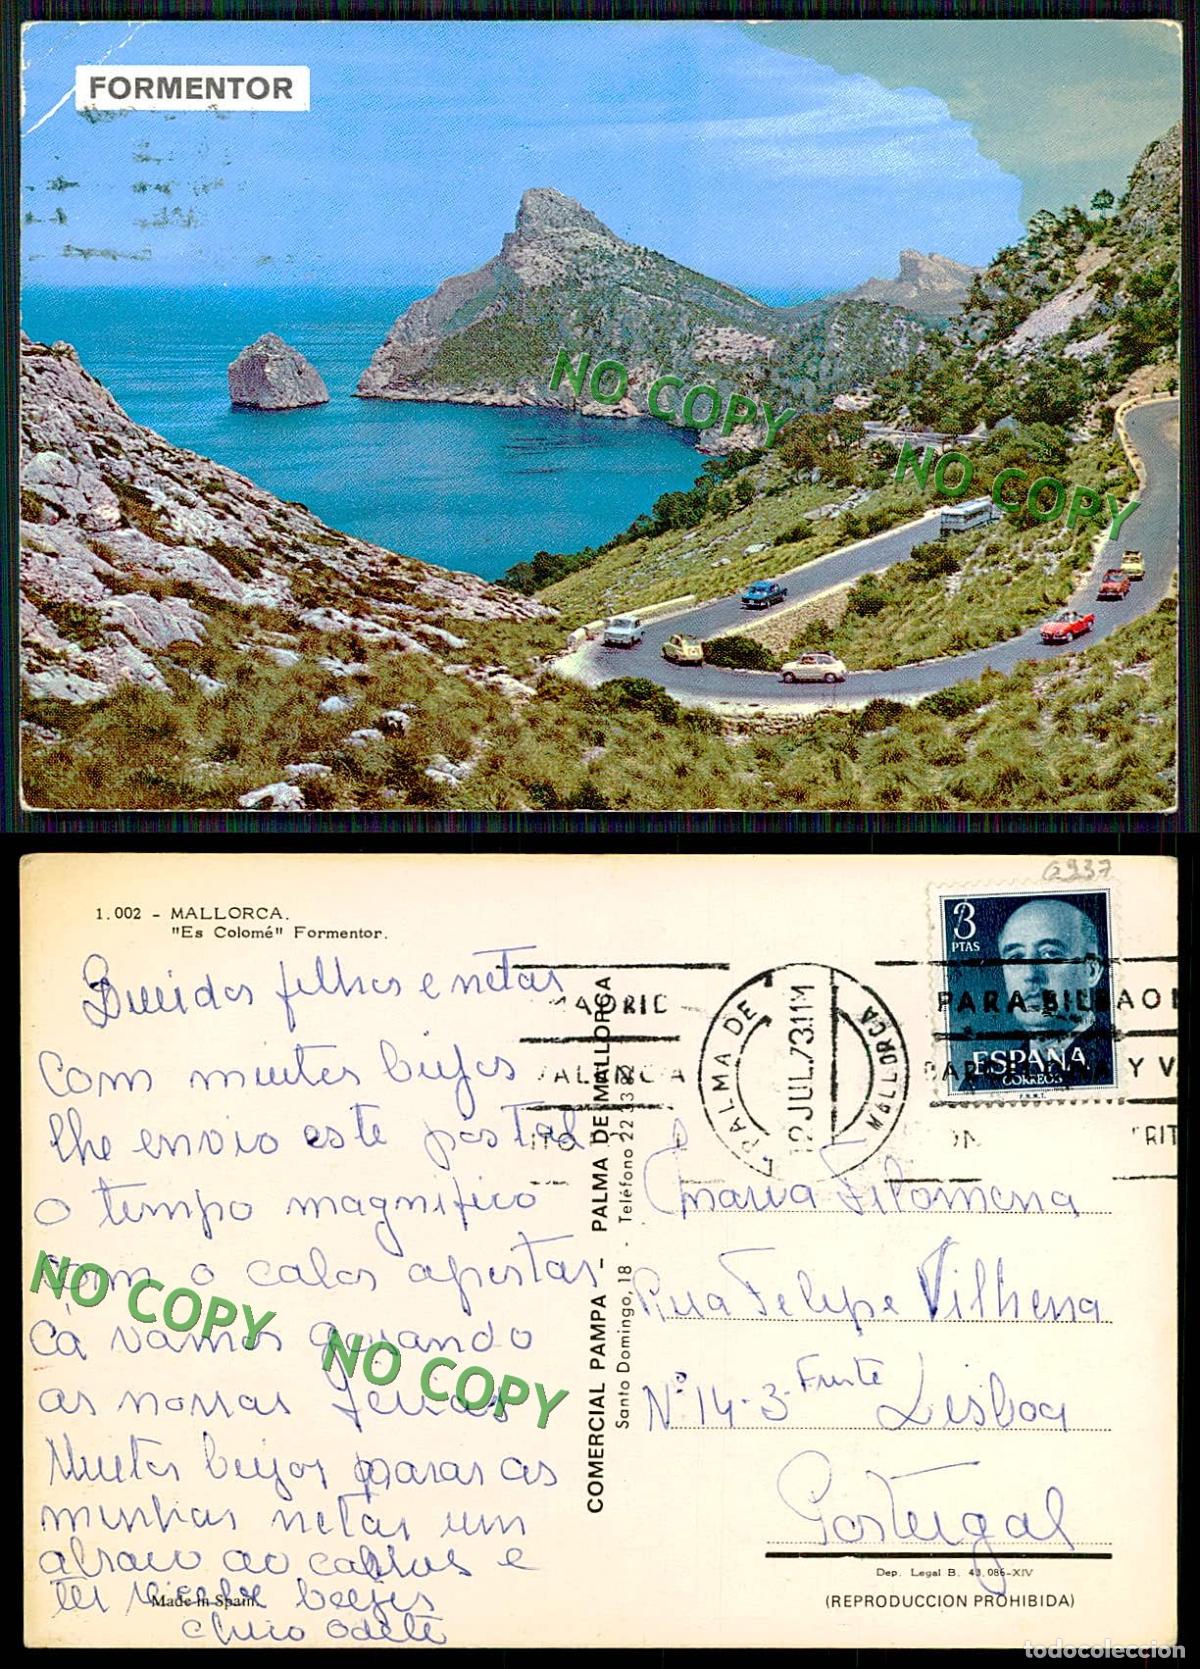 FORMENTOR
NO COPY
NO COPY
G937
1.002 - MALLORCA.
"Es Colomé" Formentor.
filhos e netas
Com muitos beijos
lhe envio este postal
o tempo magnifico
com o calor apertar
cá vamos gosando
as nossas ferias
Muitos beijos para as
minhas netas um
e
beijos
Odete
Made in Spain.
NO COPY
NO COPY
COMERCIAL PAMPA - PALMA DE MALLORCA
Santo Domingo, 18 - Teléfono 22 33 82
PALMA DE MALLORCA
12 JUL. 73. 11M
PARA BILBAO
Y V
3
PTAS
ESPAÑA
CORREOS
F.N.M.T.
Maria Filomena
Rua Felipe Vilhena
Nº 14-3- Frente Lisboa
Portugal
Dep. Legal B. 43.086-XIV
(REPRODUCCION PROHIBIDA)
todocoleccion